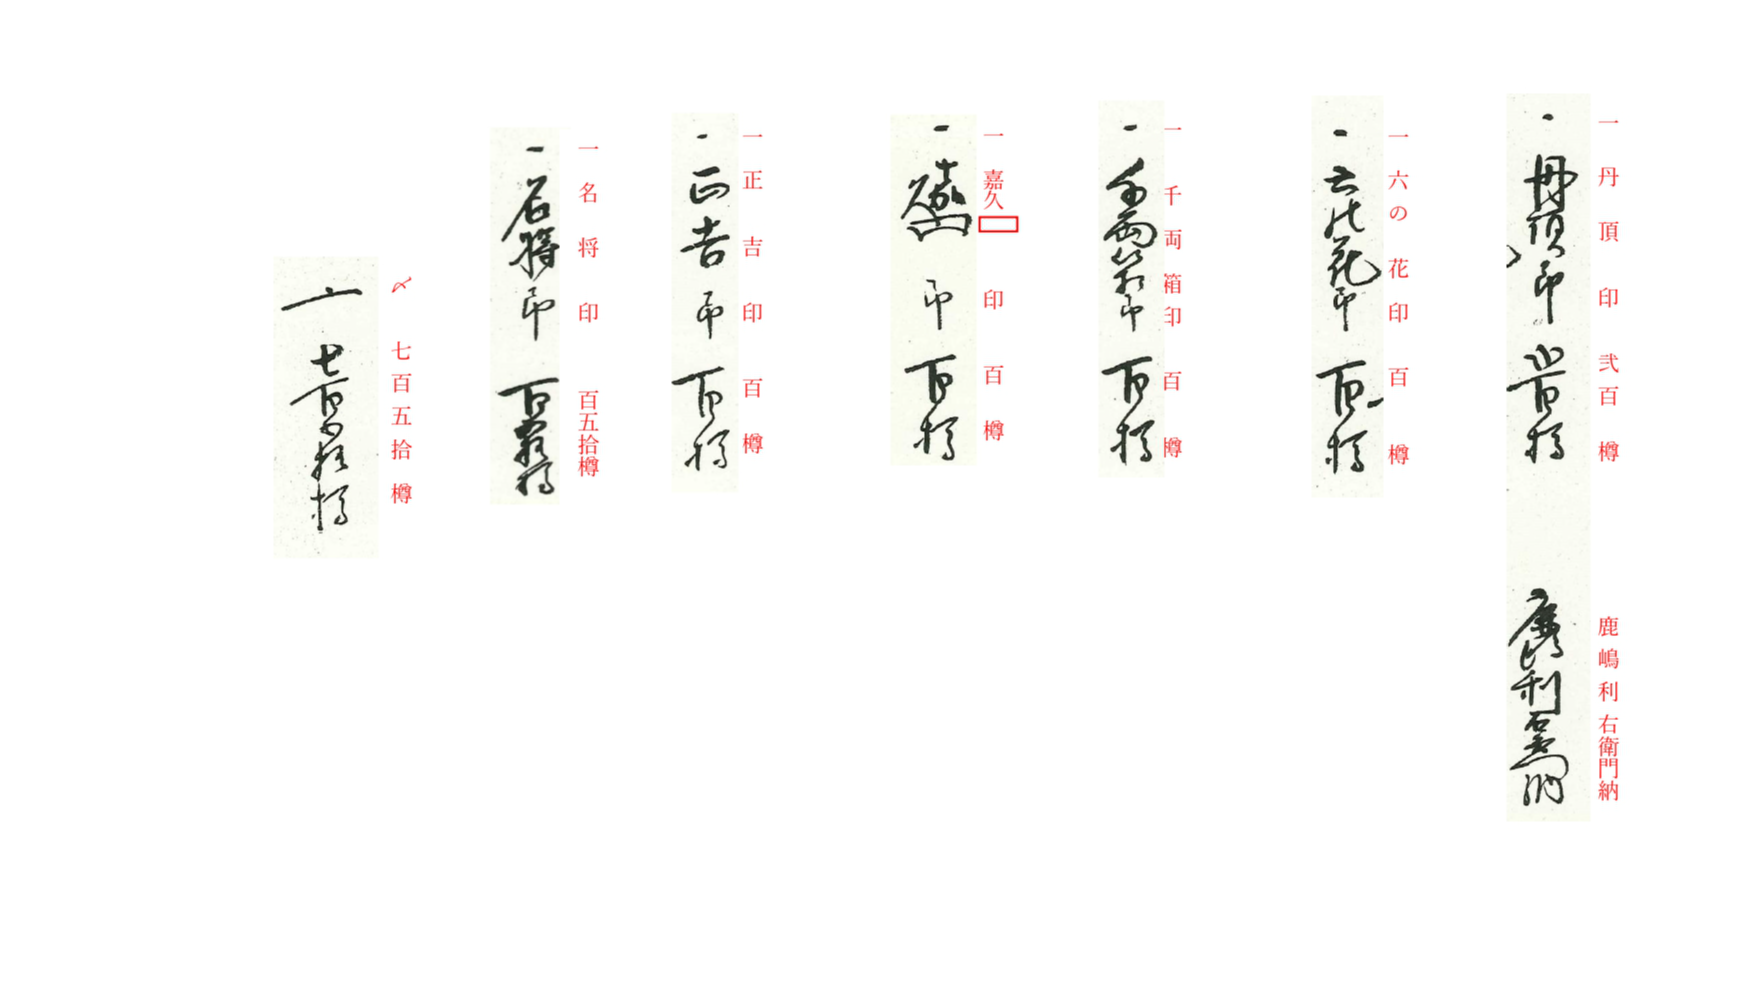 一 丹頂印 弐百樽 鹿嶋利右衛門納
一 六の花印 百樽
一 千両箱印 百樽
一 嘉久 印 百樽
一 正吉印 百樽
一 名将印 百五拾樽
〆 七百五拾樽